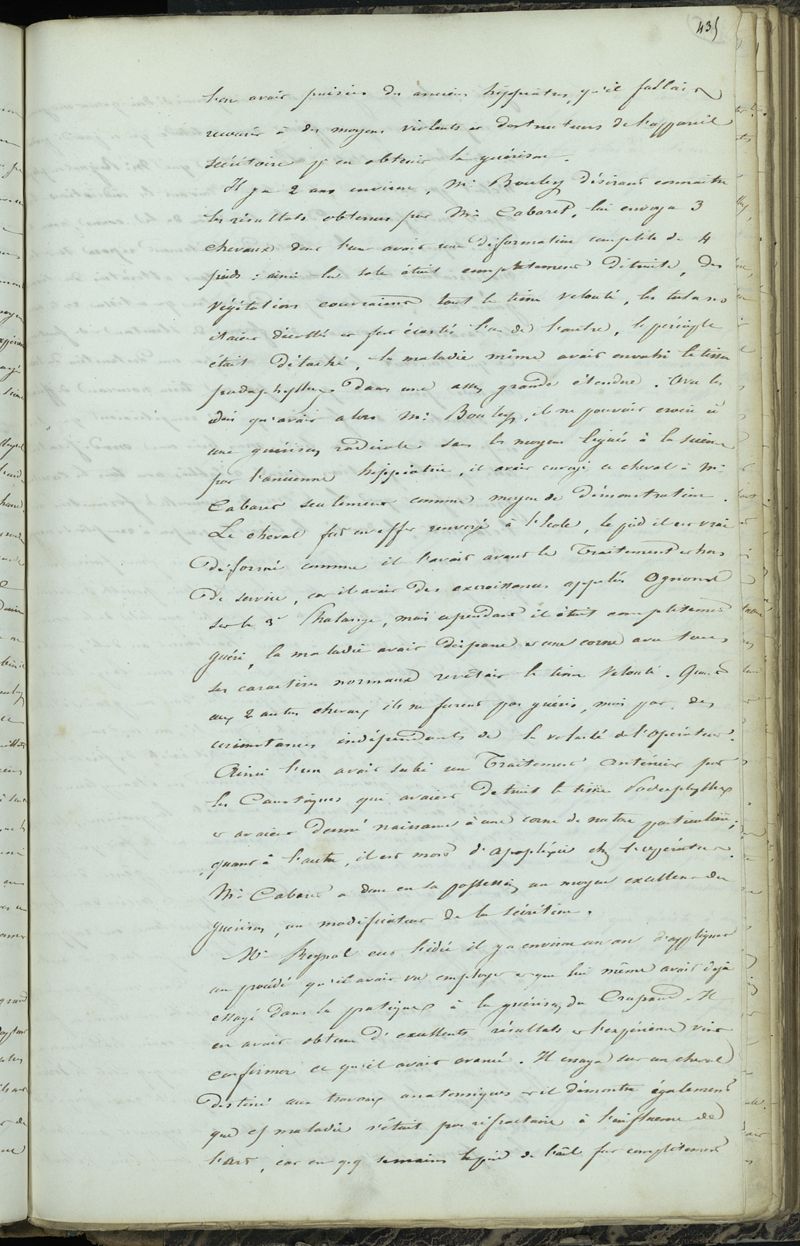 435
l'on avait puisées des anciens hippiatres, qu'il fallait
recourir à des moyens violents et destructeurs de l'appareil
sécrétoire pr en obtenir la guérison.
Il y a 2 ans environ, Mr Bouley désirant connaître
les résultats obtenus par Mr Cabaret, lui envoya 3
chevaux dont l'un avait une déformation complète de 4
pieds : ainsi la sole était complètement détruite, des
végétations couvraient tout le tissu velouté, les talons
étaient décollés et fort écartés l'un de l'autre, le périople
était détaché, la maladie même avait envahi le tissu
podophylleux dans une assez grande étendue. Avec les
idées qu'avait alors Mr Bouley, il ne pouvait croire à
une guérison radicale sans les moyens légués à la science
par l'ancienne hippiatrie, il avait envoyé ce cheval à Mr
Cabaret seulement comme moyen de démonstration.
Le cheval fut en effet renvoyé à l'école, le pied il est vrai
déformé comme il l'avait avant le Traitement et hors
de service, car il avait des excroissances appelés Ognons
sur le 3e Phalange, mais cependant il était complètement
guéri, la maladie avait disparue et une corne avec tous
ses caractères normaux revêtait le tissu velouté. Quant
aux 2 autres chevaux ils ne furent pas guéris, mais par des
circonstances indépendants de la volonté de l'opérateur.
Ainsi l'un avait subi un Traitement antérieur par
les Caustiques qui avaient détruit le tissu Podophylleux
et avaient donné naissance à une corne de nature particulière;
quant à l'autre, il est mort d'apoplexie chez l'opérateur.
Mr Cabaret a donc en sa possession un moyen excellent de
guérison, un modificateur de la sécrétion.
Mr Reynal eut l'idée il y a environ un an d'appliquer
un procédé qu'il avait vu employer et que lui même avait déjà
essayé dans la pratique à la guérison du Crapaud. Il
en avait obtenu d'excellents résultats et l'expérience vint
confirmer ce qu'il avait avancé. Il essaya sur un cheval
destiné aux travaux anatomiques et il démontra également
que cette maladie n'était pas réfractaire à l'influence de
l'art, car en qq semaines le pied de l'âne fut complètement